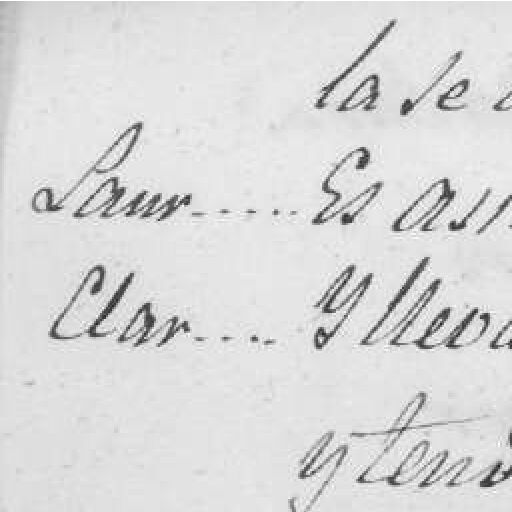 la se
Laur..... Es asi
Clar.... Y lleva
y tend